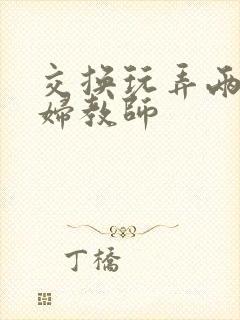 交换玩弄两
婦教師
丁橋